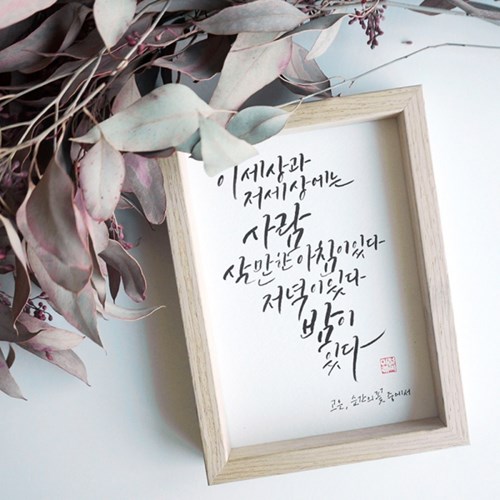 이세상과
저세상에는
사람
삶만한 아침이있다
저녁이있다
밤이
있다
고은, 순간의 꽃 중에서